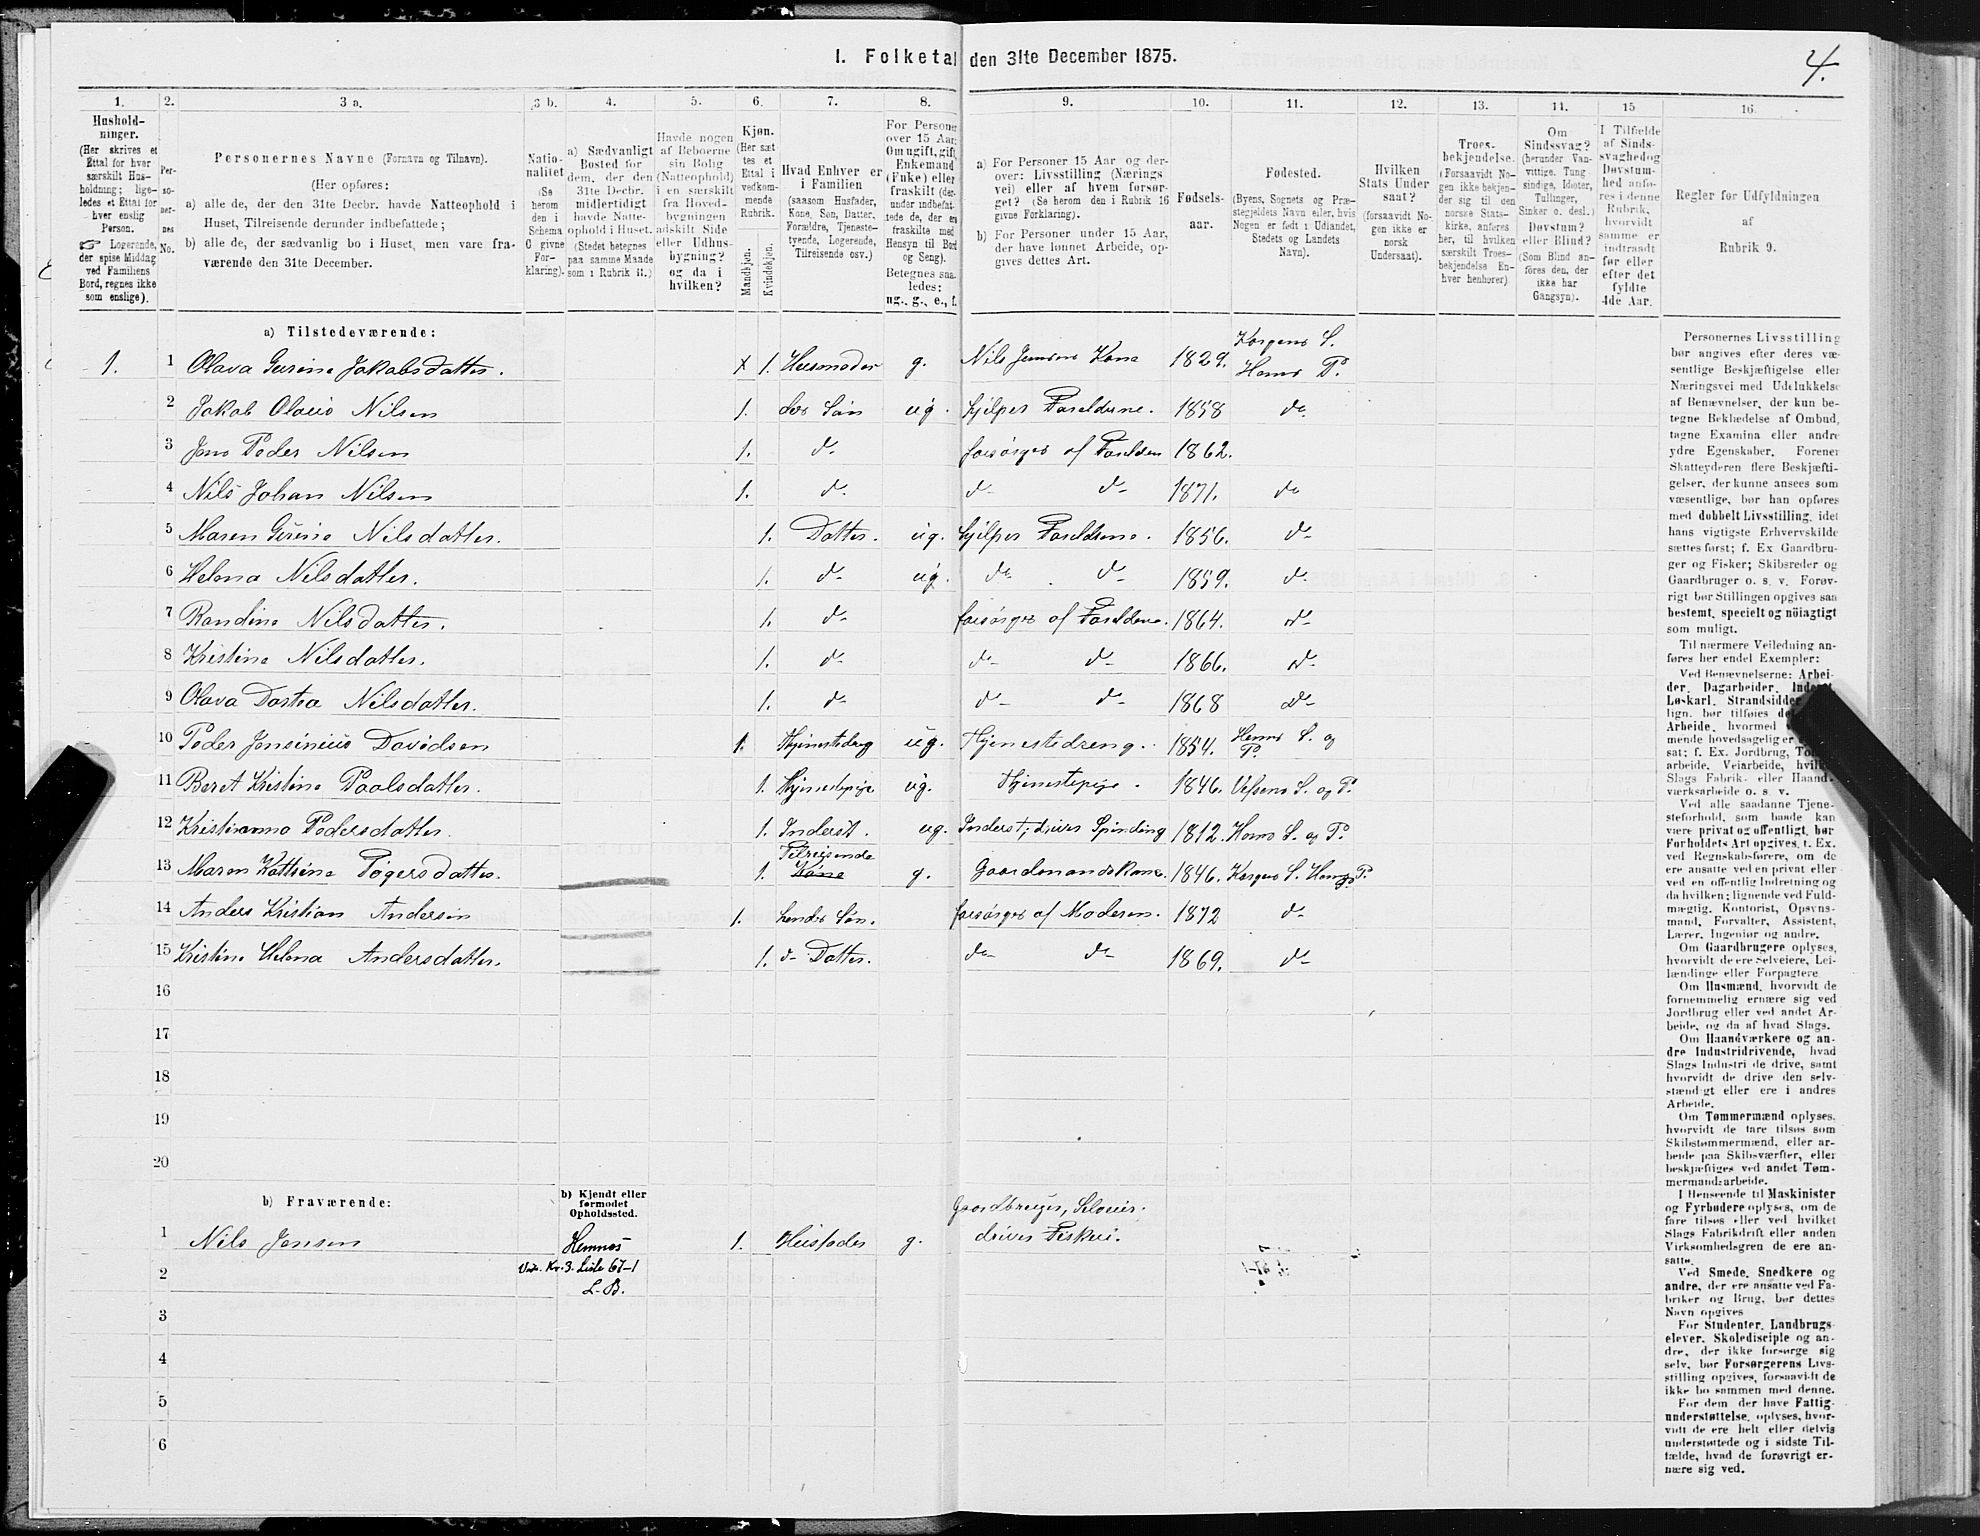 4.
I. Folketal den 31te December 1875.
1. 2. 3 a. 3 b. 4. 5. 6. 7. 8. 9. 10. 11. 12. 13. 14. 15 16.
Hushold-
ninger.
(Her skrives et
Ettal for hver
særskilt Hus-
holdning; lige-
ledes et Ettal for
hver enslig
Person.
☞ Logerende,
der spise Middag
ved Familiens
Bord, regnes ikke
som enslige).
Per-
so-
ner-
nes
No.
Personernes Navne (Fornavn og Tilnavn).
(Her opføres:
a) alle de, der den 31te Decbr. havde Natteophold i
Huset, Tilreisende derunder indbefattede;
b) alle de, der sædvanlig bo i Huset, men vare fra-
værende den 31te December.
Natio-
nalitet
(Se
herom
den i
Schema
C givne
For-
klaring).
a) Sædvanligt
Bosted for
dem, der den
31te Decbr.
midlertidigt
havde Natte-
ophold i Huset.
(Stedet betegnes
paa samme Maade
som i Rubrik 11.)
Havde nogen
af Beboerne
sin Bolig
(Natteophold)
i en særskilt
fra Hoved-
bygningen
adskilt Side
eller Udhus-
bygning?
og da i
hvilken?
Kjøn.
(Her sæt-
tes et
Ettal i
vedkom-
mende
Rubrik.
Mandkjøn.
Kvindekjøn.
Hvad Enhver er
i Familien
(saasom Husfader,
Kone, Søn, Datter,
Forældre, Tjeneste-
tyende, Logerende,
Tilreisende osv.)
For Personer
over 15 Aar,
Om ugift, gift,
Enkemand
(Enke) eller
fraskilt (der-
under indbefat-
tede de, der ere
fraskilte med
Hensyn til Bord
og Seng).
Betegnes saa-
ledes:
ug., g., e., f.
a) For Personer 15 Aar og der-
over: Livsstilling (Nærings-
vei) eller af hvem forsør-
get? (Se herom den i Rubrik 16
givne Forklaring).
b) For Personer under 15 Aar,
der have lønnet Arbeide, op-
gives dettes Art.
Fødsels-
aar.
Fødested.
(Byens, Sognets og Præ-
stegjeldets Navn eller, hvis
Nogen er født i Udlandet,
Stedets og Landets
Navn).
Hvilken
Stats Under-
saat?
(forsaavidt No-
gen ikke er
norsk
Undersaat).
Troes-
bekjendelse.
(Forsaavidt No-
gen ikke bekjen-
der sig til den
norske Stats-
kirke, anføres
her, til hvilken
særskilt Troes-
bekjendelse En-
hver henhører).
Om
Sindssvag?
(herunder Van-
vittige, Tung-
sindige, Idioter,
Tullinger,
Sinker o. desl.)
Døvstum?
eller Blind?
(Som Blind an-
føres den, der
ikke har
Gangsyn).
I Tilfælde
af Sinds-
svaghed og
Døvstum-
hed anfø-
res i denne
Rubrik,
hvorvidt
samme er
indtraadt
før eller
efter det
fyldte
4de Aar.
Regler for Udfyldningen
af
Rubrik 9.
a) Tilstedeværende:
Korgens S.
1. 1 Olava Gurine Jakobsdatter. x 1. Husmoder g. Nils Jensens Kone 1829. Hemns P.
2 Jakob Olaus Nilsen 1. des Søn ug. hjelper Forældrene. 1858 do
3 Jens Peder Nilsen 1. d- forsørges af Forældrene 1862.
4 Nils Johan Nilsen 1. d- d- d- 1871. do
5 Maren Gurine Nilsdatter. 1. Datter. ug. hjelper Forældrene. 1856. d-
6 Helena Nilsdatter. 1. d- ug. do d- 1859. d-
7 Randine Nilsdatter. 1. d- forsørges af Forældrene. 1864. d-
8 Kristine Nilsdatter. 1. d- d- d- 1866. d-
9 Olava Dortea Nilsdatter. 1. d- d- d- 1868 d-
10 Peder Jensinius Davidsen 1. Tjenestedreng ug. Tjenestedreng. 1854. Hemns S. og
P.
11 Beret Kristine Paalsdatter. 1. Tjenestepige ug. Tjenestepige. 1846. Vefsens S. og P.
12 Kristianna Pedersdatter. 1. Inderst. ug. Inderst, driver Spinding 1812. Hemns S. og P.
Tilreisende
13 Maren Katrine Pedersdatter. 1. Kone g. Gaardmandskone. 1846. Korgens S. Hemns P.
14 Anders Kristian Andersen 1. hendes Søn. forsørges af Moderen. 1872 d-
15 Kristine Helena Andersdatter. 1. d- Datter. do d- 1869. d-
16
17
18
19
20
b) Fraværende:
b) Kjendt eller
formodet
Opholdssted.
Gaardbruger, Selveier.
1 Nils Jensen Hemnes 1. Husfader g. driver Fiskeri.
2 Und. Kr. 3. Liste 67-1
L. B.
3
4
5
6
Personernes Livsstilling
bør angives efter deres væ-
sentlige Beskjæftigelse eller
Næringsvei med Udelukkelse
af Benævnelser, der kun be-
tegne Beklædelse af Ombud,
tagne Examina eller andre
ydre Egenskaber. Forener
Skatteyderen flere Beskjæfti-
gelser, der kunne ansees som
væsentlige, bør han opføres
med dobbelt Livsstilling, idet
hans vigtigste Erhvervskilde
sættes først; f. Ex. Gaardbru-
ger og Fisker; Skibsreder og
Gaardbruger o. s. v. Forøv-
rigt bør Stillingen opgives saa
bestemt, specielt og nöiagtigt
som muligt.
Til nærmere Veiledning an-
føres her endel Exempler:
Ved Benævnelserne: Arbei-
der, Dagarbeider, Inderst,
Løskarl, Strandsidder
lign. bør tilføies
Arbeide, hvormed
mende hovedsagelig er
sat; f. Ex. Jordbrug,
arbeide, Veiarbeide,
Slags Fabrik- eller Haand-
værksarbeide o. s. v.
Ved alle saadanne Tjene-
steforhold, som baade kan
være privat og offentligt, bør
Forholdets Art opgives, t. Ex.
ved Regnskabsførere, om de
ere ansatte ved en privat eller
ved en offentlig Indretning og
da hvilken; lignende ved Fuld-
mægtig, Kontorist, Opsyns-
mand, Forvalter, Assistent,
Lærer, Ingeniør og andre.
Om Gaardbrugere oplyses,
hvorvidt de ere Selveiere, Lei-
lændinge eller Forpagtere
Om Husmænd, hvorvidt de
fornemmelig ernære sig ved
Jordbrug eller ved andet Ar-
beide, og da af hvad Slags.
Om Haandværkere og an-
dre Industridrivende, hvad
Slags Industri de drive, samt
hvorvidt de drive den selv-
stændigt eller ere i andres
Arbeide.
Om Tømmermænd oplyses,
hvorvidt de fare tilsøs som
Skibstømmermænd, eller ar-
beide paa Skibsværfter, eller
beskjæftiges ved andet Tøm-
mermandsarbeide.
I Henseende til Maskinister
og Fyrbødere oplyses, om de
fare tilsøs eller ved hvilket
Slags Fabrikdrift eller anden
Virksomhedsgren de ere an-
satte.
Ved Smede, Snedkere og
andre, der ere ansatte ved Fa-
briker og Brug, bør dettes
Navn opgives
For Studenter, Landbrugs-
elever, Skoledisciple og an-
dre, der ikke forsørge sig
selv, bør Forsørgerens Livs-
stilling opgives, forsaavidt de
ikke bo sammen med denne.
For dem, der have Fattig-
understøttelse, oplyses, hvor-
vidt de ere helt eller delvis
understøttede og i sidste Til-
fælde, hvad de forøvrigt er-
nære sig ved.